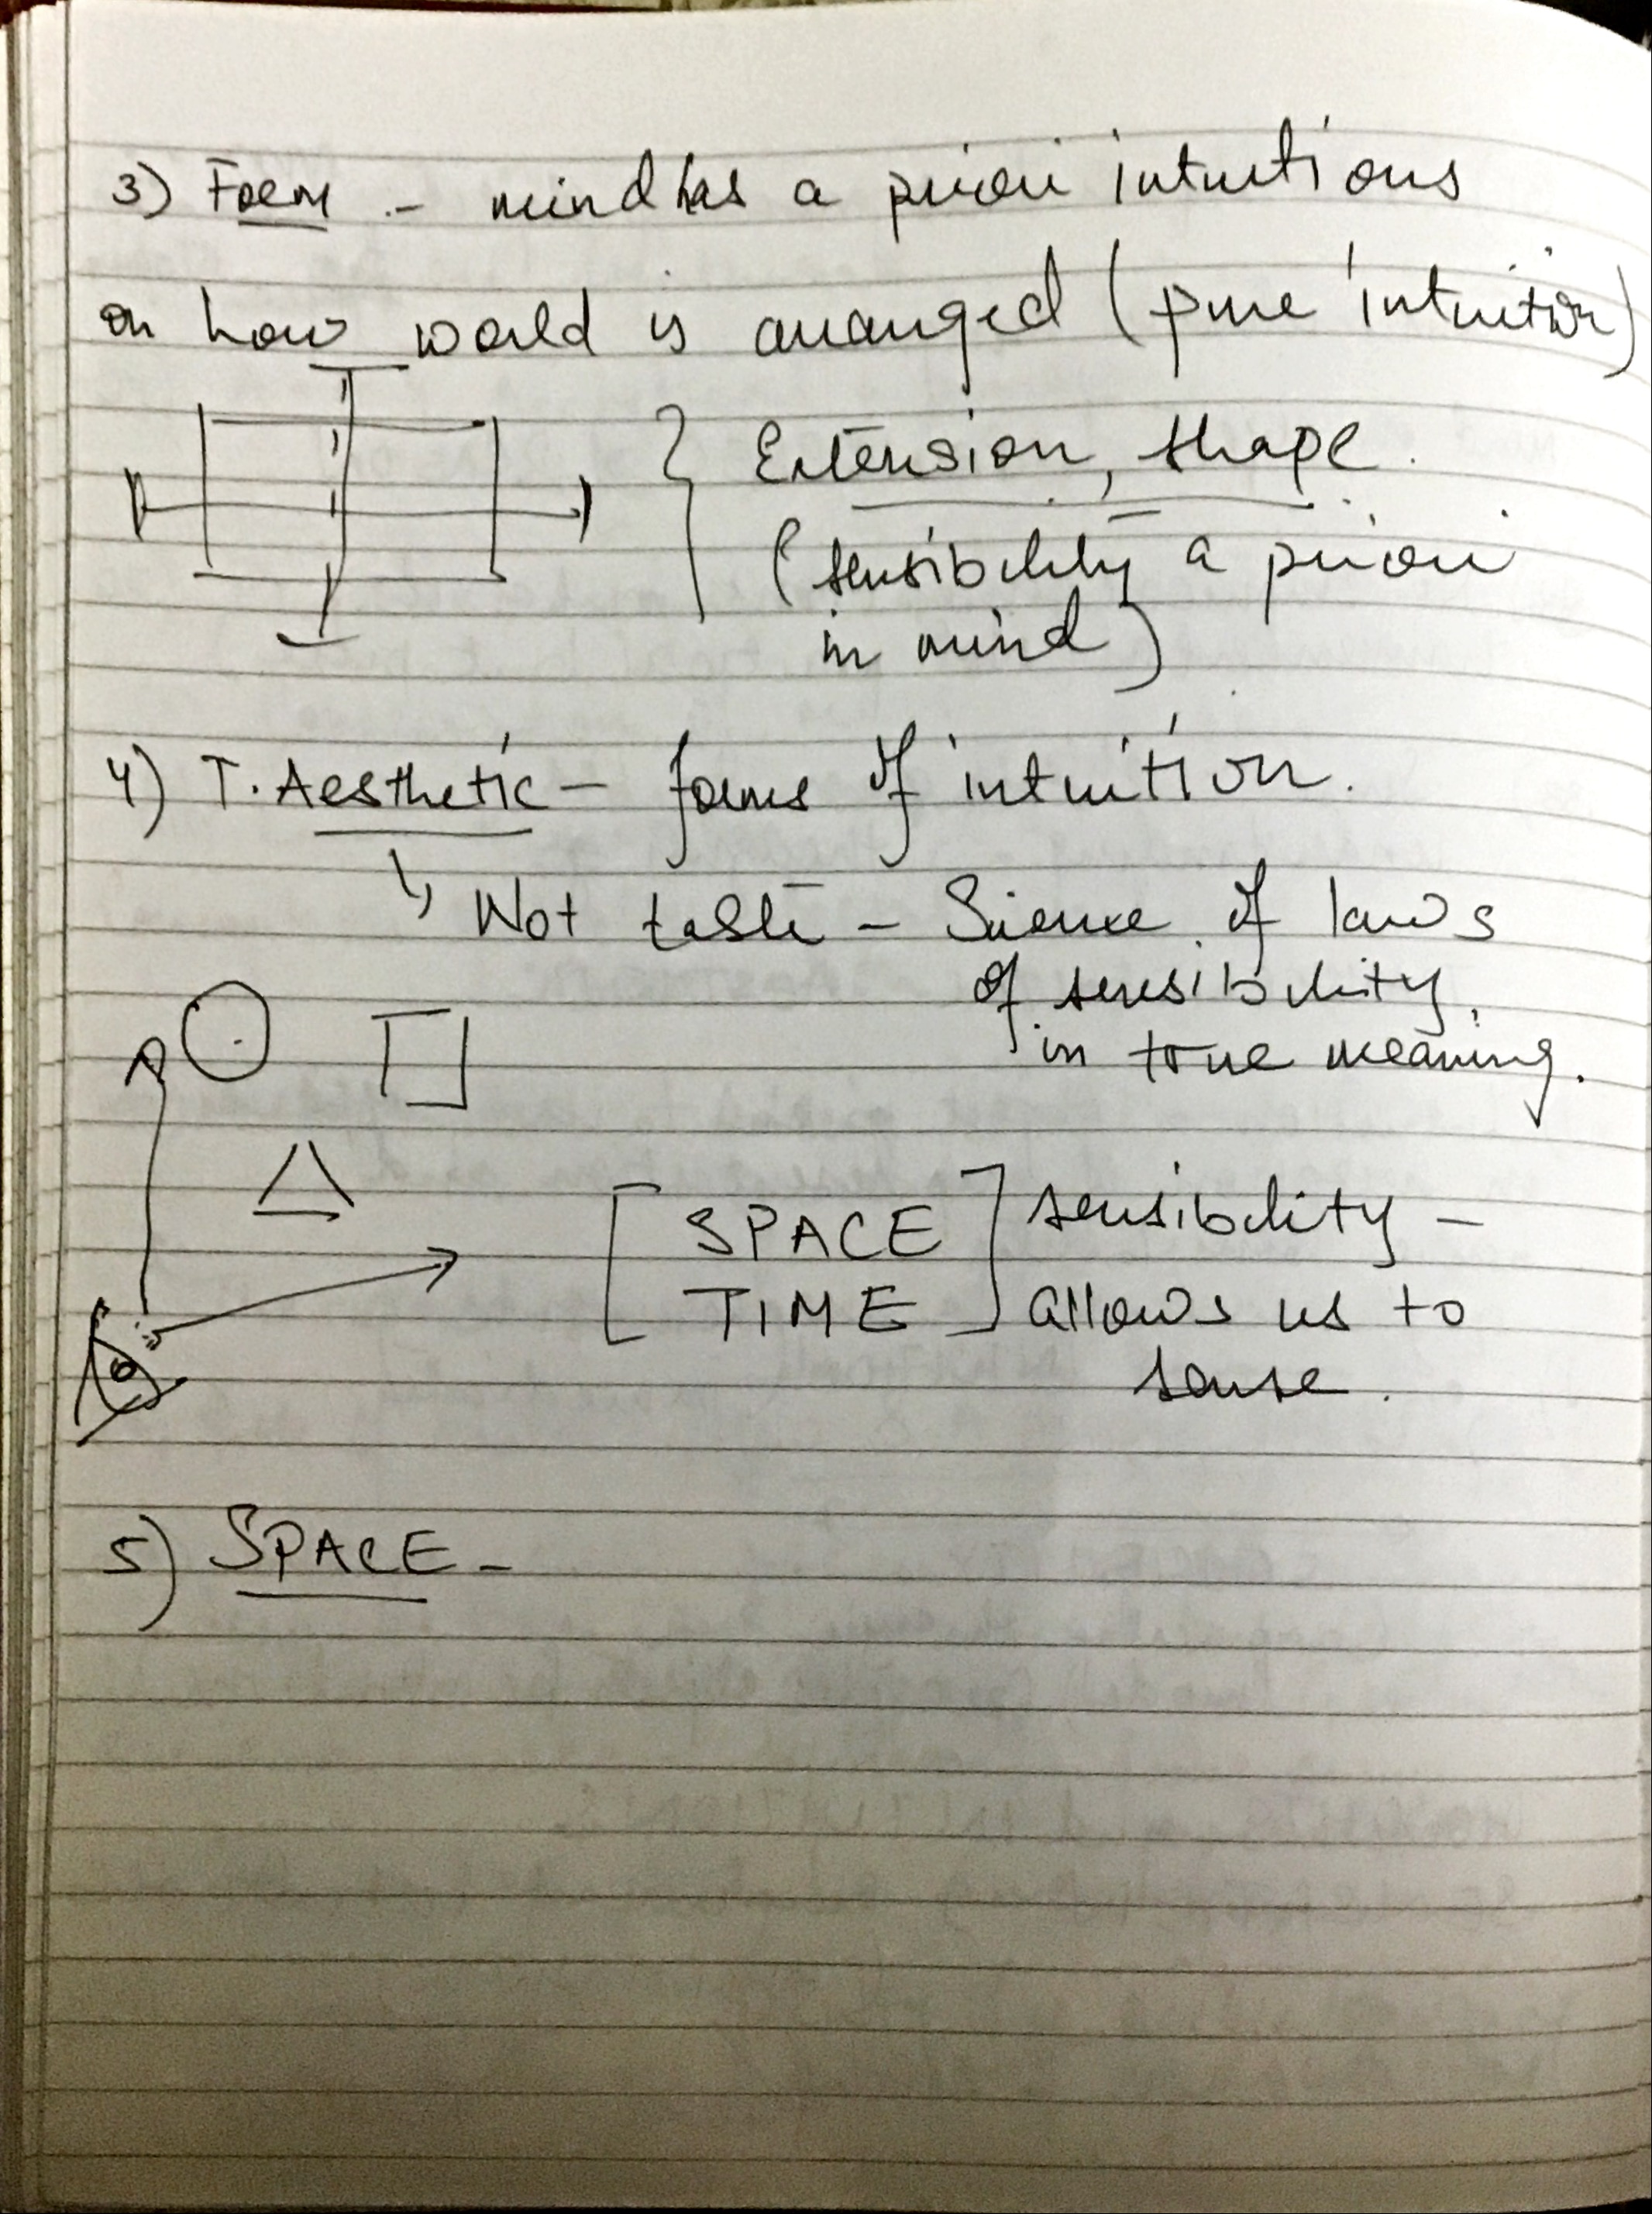 3) Form - mind has a priori intuitions
on how world is arranged (pure intuition)
Extension, shape.
(sensibility a priori
in mind)
4) T. Aesthetic - forms of intuition.
Not taste - Science of laws
of sensibility,
in true meaning.
[SPACE] sensibility -
[TIME] allows us to
sense.
5) SPACE -